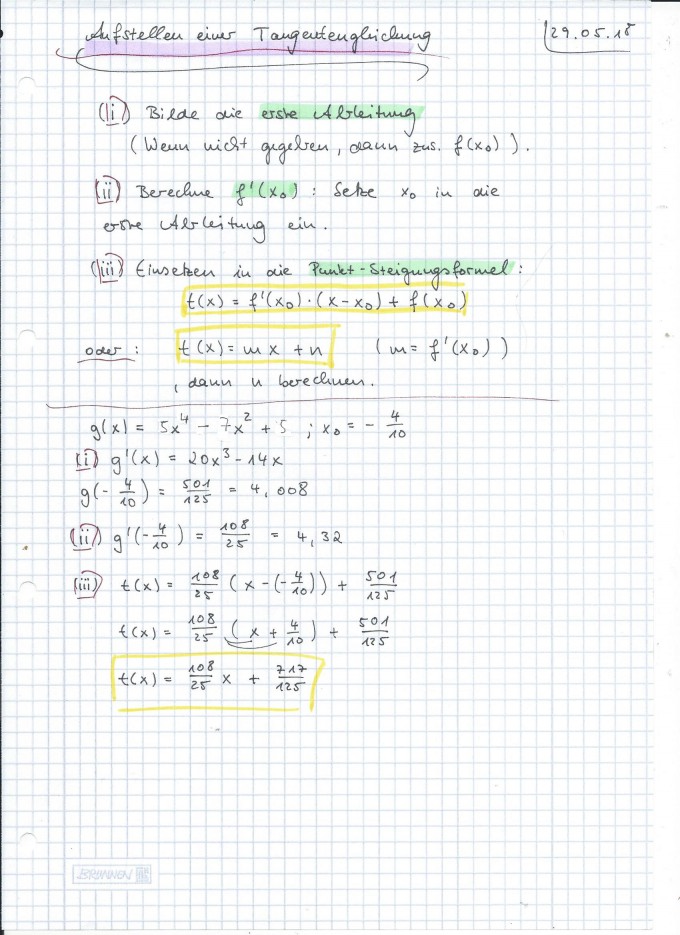 Aufstellen einer Tangentengleichung
29.05.18
(i) Bilde die erste Ableitung
(Wenn nicht gegeben, dann zus. f(x₀)).
(ii) Berechne f'(x₀) : Setze x₀ in die
erste Ableitung ein.
(iii) Einsetzen in die Punkt-Steigungsformel:
t(x) = f'(x₀)·(x-x₀) + f(x₀)
oder: t(x) = mx + n (m = f'(x₀))
, dann n berechnen.
g(x) = 5x⁴ - 7x² + 5 ; x₀ = - 4/10
(i) g'(x) = 20x³ - 14x
g(- 4/10) = 501/125 = 4,008
(ii) g'(- 4/10) = 108/25 = 4,32
(iii) t(x) = 108/25 (x - (- 4/10)) + 501/125
t(x) = 108/25 (x + 4/10) + 501/125
t(x) = 108/25 x + 717/125
BRUNNEN